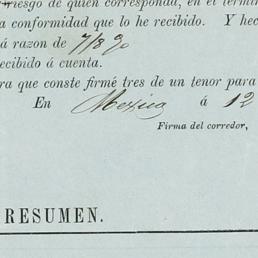 riesgo de quien corresponda, en el términ
a conformidad que lo he recibido. Y hec
á razon de 7/8 %
ecibido á cuenta.
ra que conste firmé tres de un tenor para
En Mexico á 12
Firma del corredor,
RESUMEN.